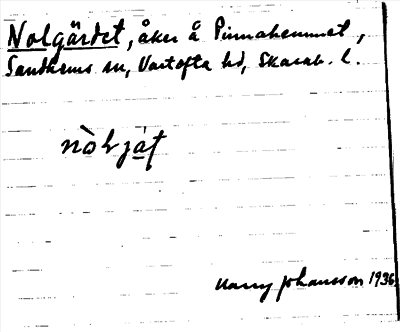 Nolgärdet, åker å Pinnahemmet,
Sandhems sn, Vartofta hd, Skarab. l.
Harry Johansson 1936.